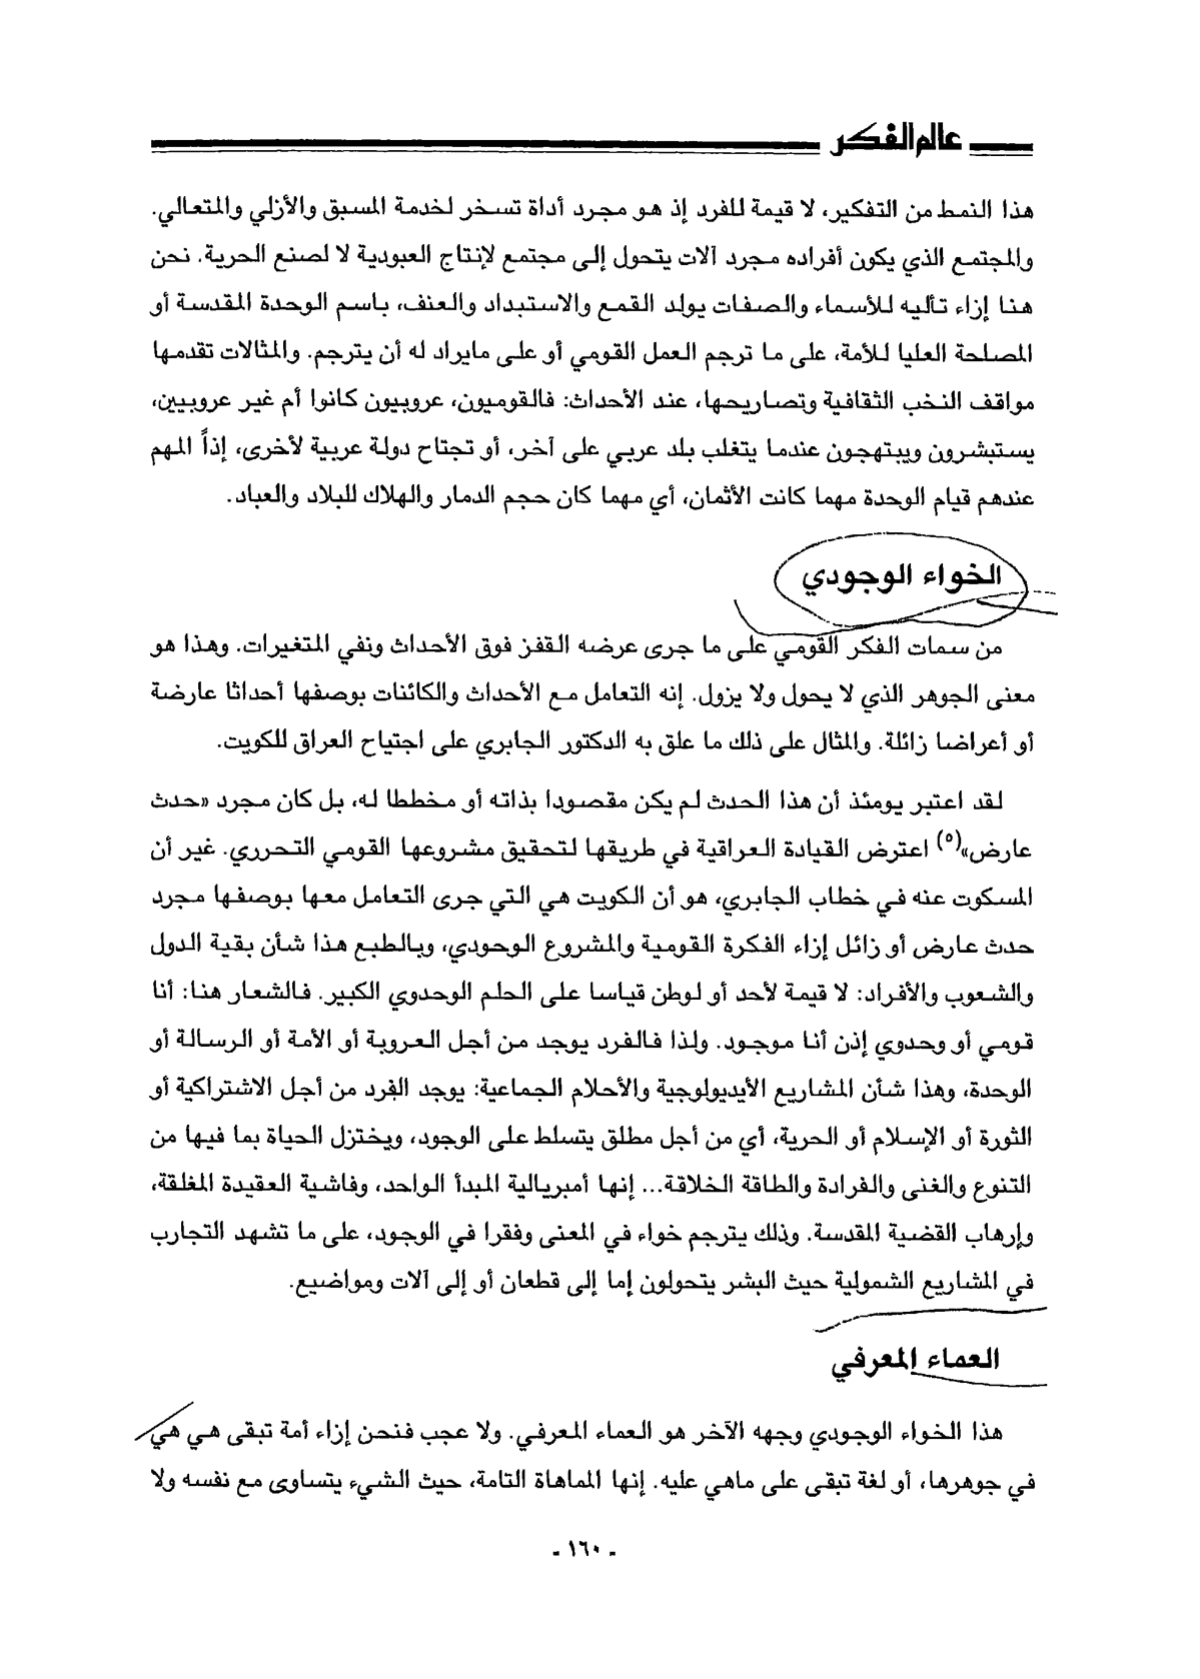 عالم الفكر
هذا النمط من التفكير، لا قيمة للفرد إذ هو مجرد أداة تسخر لخدمة المسبق والأزلي والمتعالي.
والمجتمع الذي يكون أفراده مجرد آلات يتحول إلى مجتمع لإنتاج العبودية لا لصنع الحرية. نحن
هنا إزاء تأليه للأسماء والصفات يولد القمع والاستبداد والعنف، باسم الوحدة المقدسة أو
المصلحة العليا للأمة، على ما ترجم العمل القومي أو على مايراد له أن يترجم. والمثالات تقدمها
مواقف النخب الثقافية وتصاريحها، عند الأحداث: فالقوميون، عروبيون كانوا أم غير عروبيين،
يستبشرون ويبتهجون عندما يتغلب بلد عربي على آخر، أو تجتاح دولة عربية لأخرى، إذاً المهم
عندهم قيام الوحدة مهما كانت الأثمان، أي مهما كان حجم الدمار والهلاك للبلاد والعباد.
الخواء الوجودي
من سمات الفكر القومي على ما جرى عرضه القفز فوق الأحداث ونفي المتغيرات. وهذا هو
معنى الجوهر الذي لا يحول ولا يزول. إنه التعامل مع الأحداث والكائنات بوصفها أحداثا عارضة
أو أعراضا زائلة. والمثال على ذلك ما علق به الدكتور الجابري على اجتياح العراق للكويت.
لقد اعتبر يومئذ أن هذا الحدث لم يكن مقصودا بذاته أو مخططا له، بل كان مجرد «حدث
عارض»(٥) اعترض القيادة العراقية في طريقها لتحقيق مشروعها القومي التحرري. غير أن
المسكوت عنه في خطاب الجابري، هو أن الكويت هي التي جرى التعامل معها بوصفها مجرد
حدث عارض أو زائل إزاء الفكرة القومية والمشروع الوحودي، وبالطبع هذا شأن بقية الدول
والشعوب والأفراد: لا قيمة لأحد أو لوطن قياسا على الحلم الوحدوي الكبير. فالشعار هنا: أنا
قومي أو وحدوي إذن أنا موجود. ولذا فالفرد يوجد من أجل العروبة أو الأمة أو الرسالة أو
الوحدة، وهذا شأن المشاريع الأيديولوجية والأحلام الجماعية: يوجد الفرد من أجل الاشتراكية أو
الثورة أو الإسلام أو الحرية، أي من أجل مطلق يتسلط على الوجود، ويختزل الحياة بما فيها من
التنوع والغنى والفرادة والطاقة الخلاقة... إنها أمبريالية المبدأ الواحد، وفاشية العقيدة المغلقة،
وإرهاب القضية المقدسة. وذلك يترجم خواء في المعنى وفقرا في الوجود، على ما تشهد التجارب
في المشاريع الشمولية حيث البشر يتحولون إما إلى قطعان أو إلى آلات ومواضيع.
العماء المعرفي
هذا الخواء الوجودي وجهه الآخر هو العماء المعرفي. ولا عجب فنحن إزاء أمة تبقى هي هي
في جوهرها، أو لغة تبقى على ماهي عليه. إنها الماهاة التامة، حيث الشيء يتساوى مع نفسه ولا
- ١٦٠ -